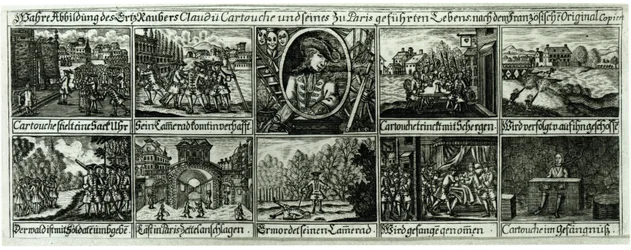 Wahre Abbildung des Ertz Raubers Claudii Cartouche und seines zu Paris geführten Lebens. nach dem Französische Original Copiert
Cartouche stielt eine Sack Uhr
Sein Camerad komt in verhafft
Cartouche trinckt mit Schergen
Wird verfolgt u. auf ihn geschosse
Der wald ist mit Soldate umbgebē
Läst in Paris Zettel anschlagen.
Ermordet seinen Camerad.
Wird gefange genom̄en.
Cartouche im Gefängnuß.